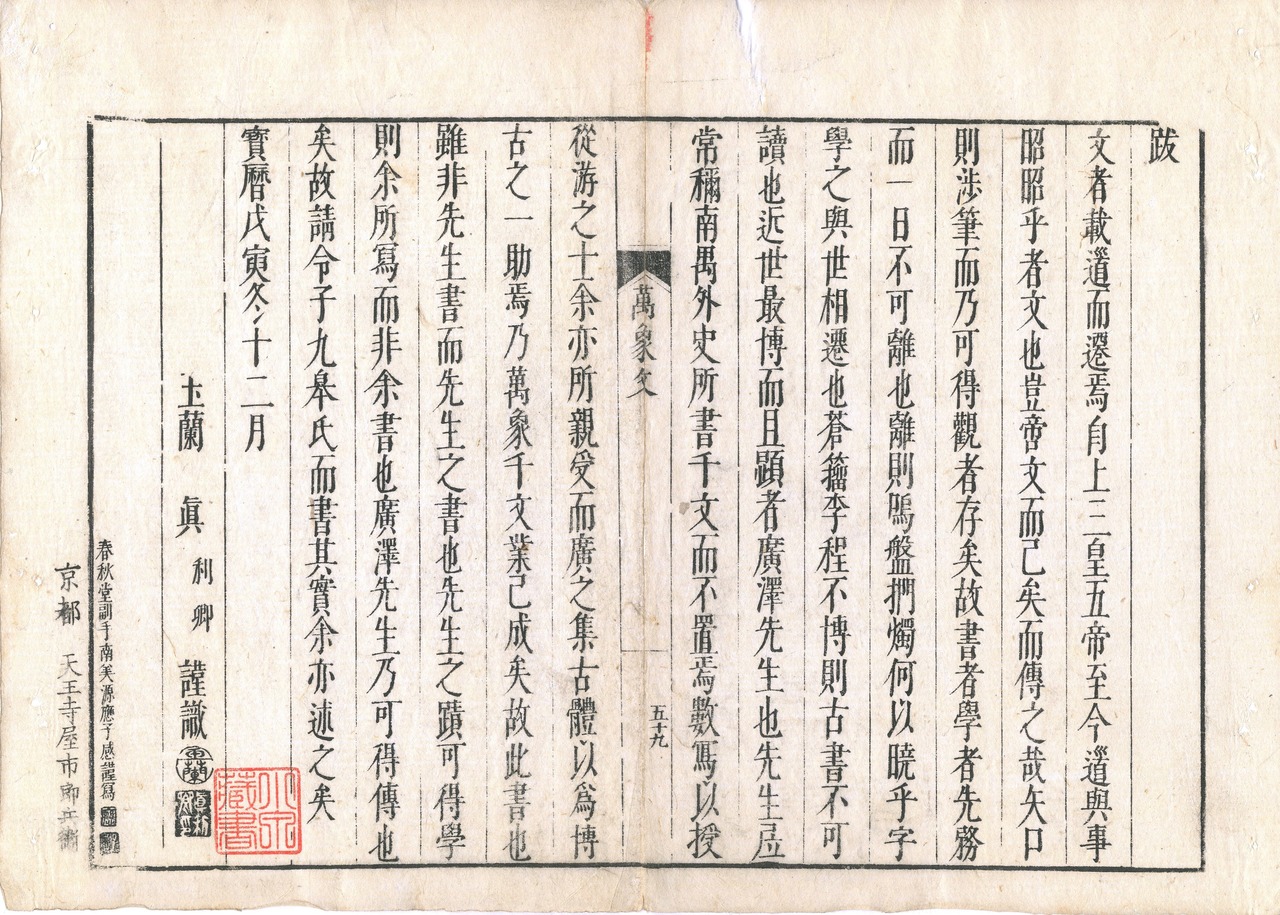 跋
文者載道而遷焉自上三皇五帝至今道與事
昭昭乎者文也豈啻文而已矣而傳之哉矢口
則涉筆而乃可得觀者存矣故書者學者先務
而一日不可離也離則鳴盤捫燭何以曉乎字
學之與世相遷也蒼籀李程不博則古書不可
讀也近世最博而且顕者廣澤先生也先生
常稱南禺外史所書千文而不置焉數寫以授
萬象文
五十九
從游之士余亦所親受而廣之集古體以爲博
古之一助焉乃萬象千文業已成矣故此書也
雖非先生書而先生之書也先生之蹟可得學
則余所寫而非余書也廣澤先生乃可得傳也
矣故請令子九皋氏而書其實余亦述之矣
寶曆戊寅冬十二月
玉蘭 眞 利卿 謹識
春秋堂訓手南美源應子感謹寫
京都 天王寺屋市郎兵衛
藏書